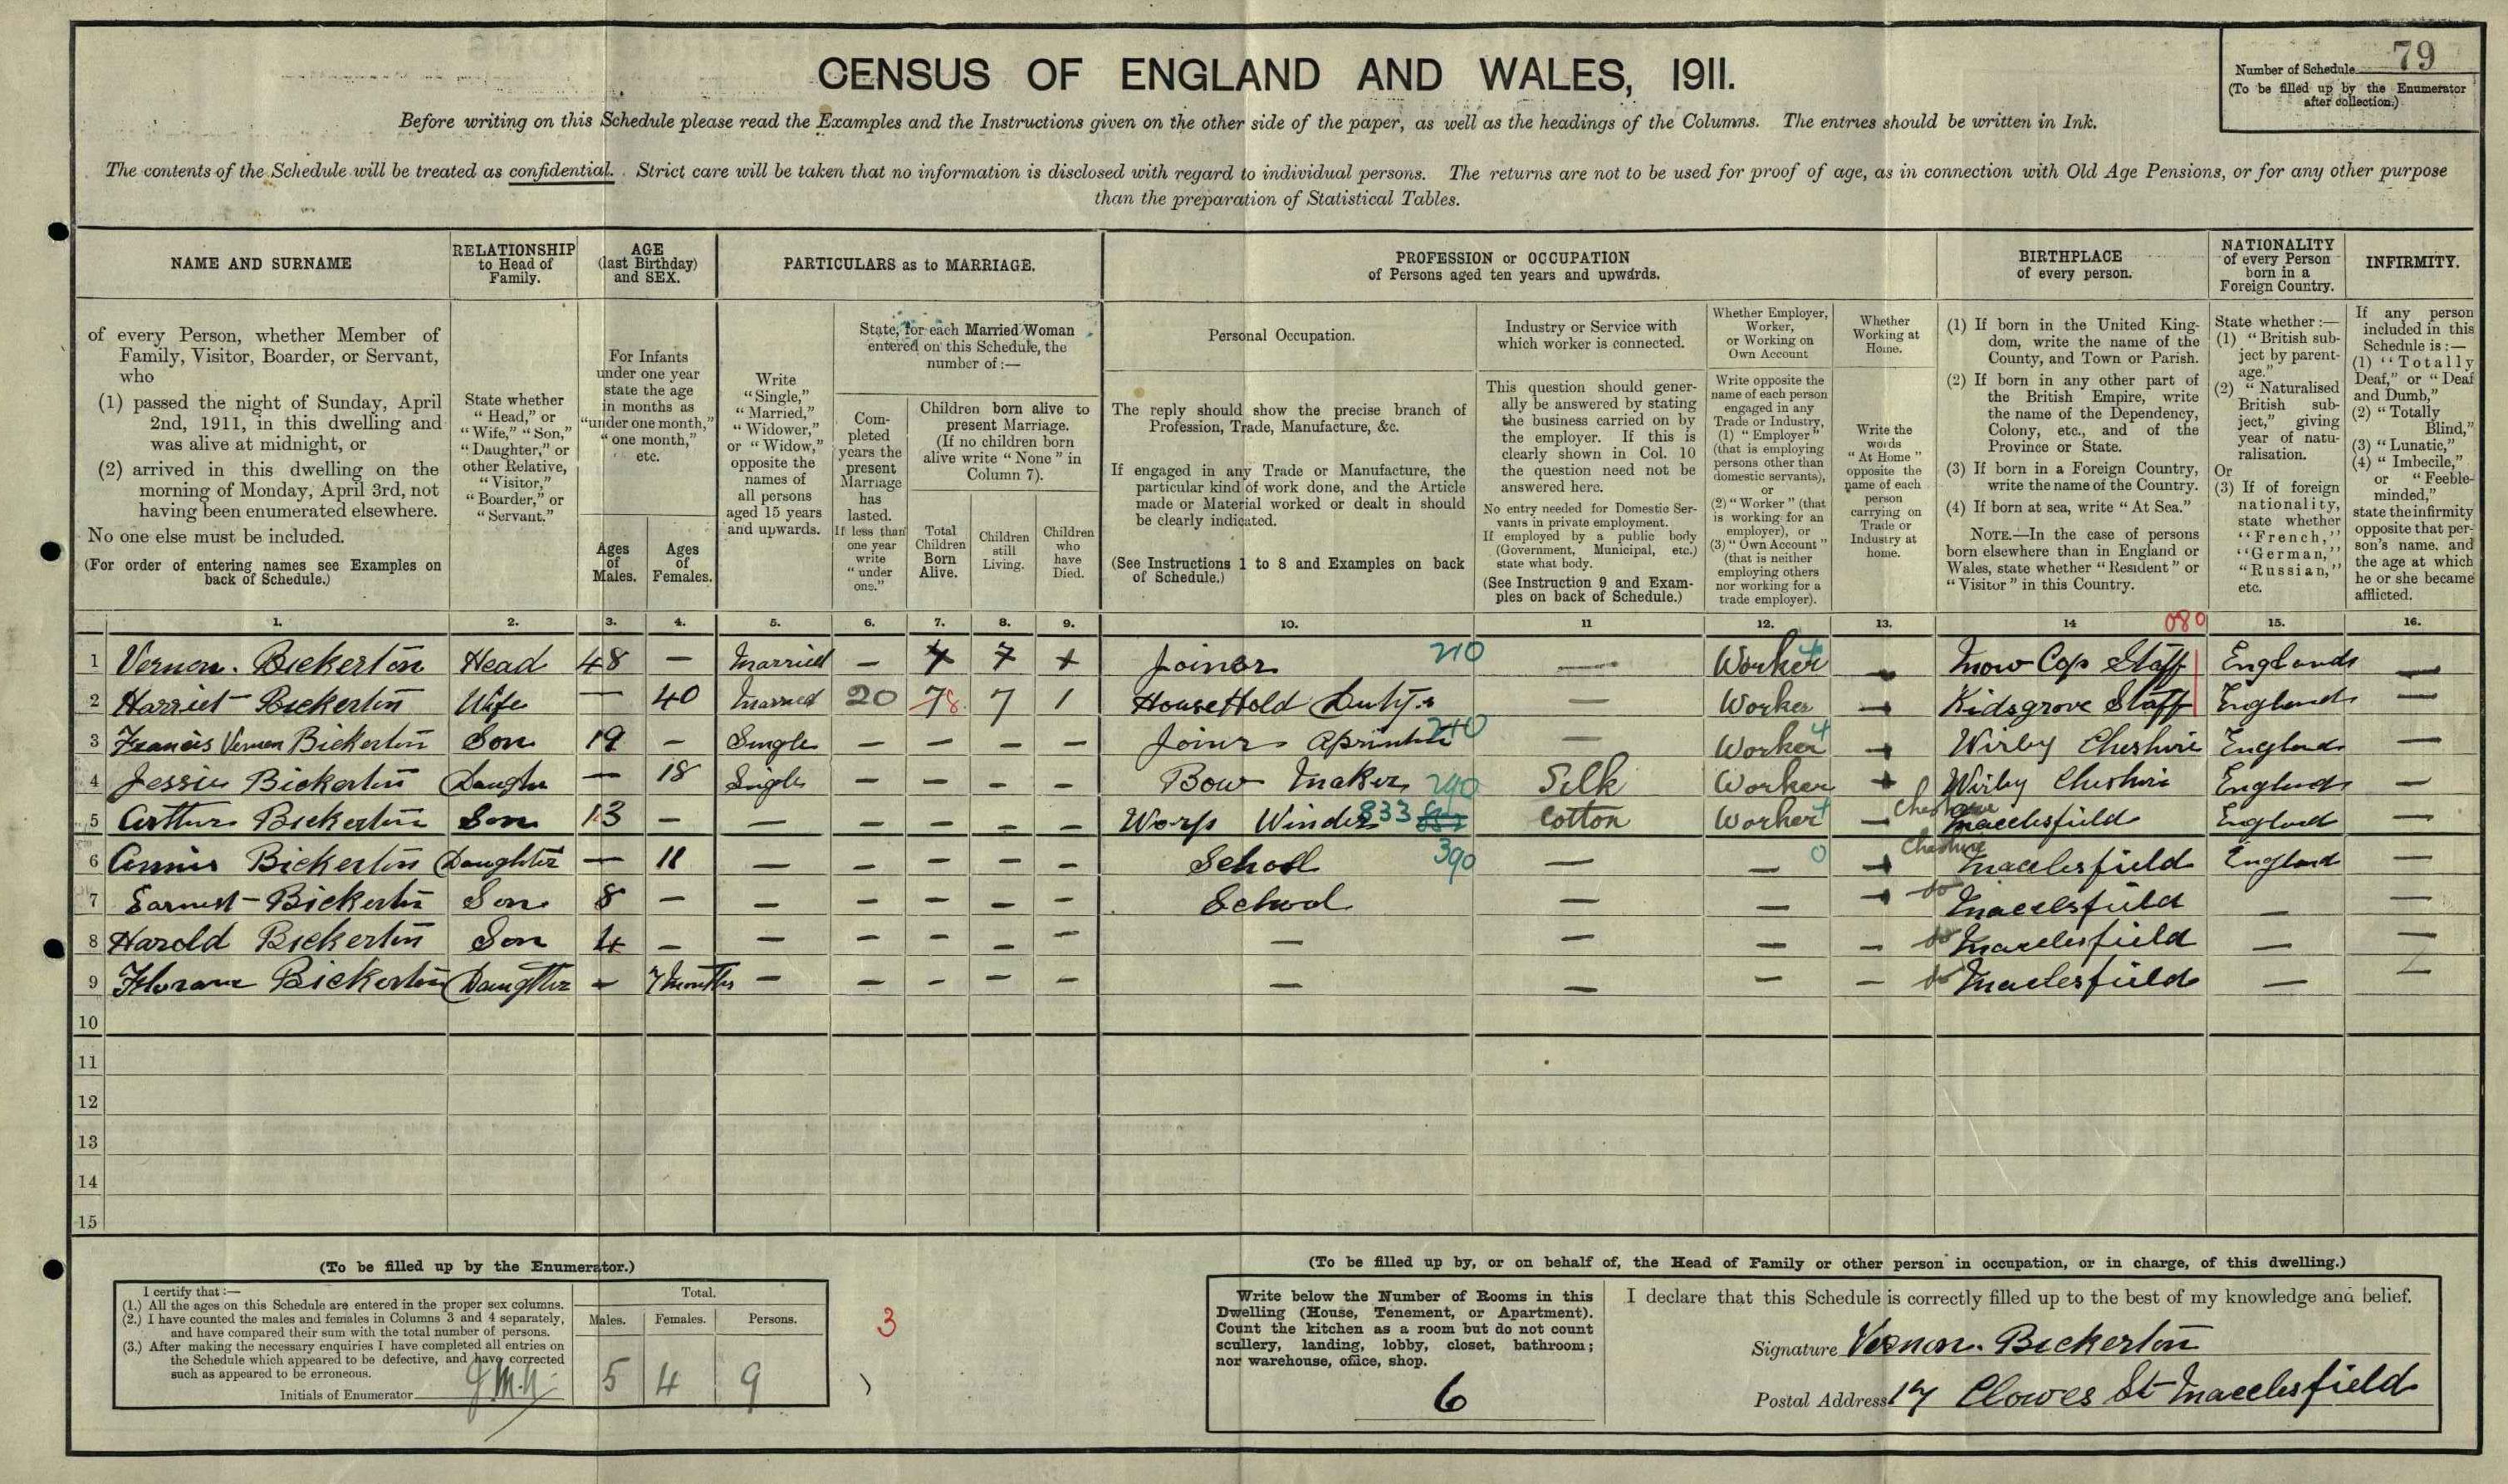 79
Number of Schedule
(To be filled up by the Enumerator
after collection.)
CENSUS OF ENGLAND AND WALES, 1911.
Before writing on this Schedule please read the Examples and the Instructions given on the other side of the paper, as well as the headings of the Columns. The entries should be written in Ink.
The contents of the Schedule will be treated as confidential. Strict care will be taken that no information is disclosed with regard to individual persons. The returns are not to be used for proof of age, as in connection with Old Age Pensions, or for any other purpose
than the preparation of Statistical Tables.
NAME AND SURNAME
of every Person, whether Member of
Family, Visitor, Boarder, or Servant,
who
(1) passed the night of Sunday, April
2nd, 1911, in this dwelling and
was alive at midnight, or
(2) arrived in this dwelling on the
morning of Monday, April 3rd, not
having been enumerated elsewhere.
No one else must be included.
(For order of entering names see Examples on
back of Schedule.)
RELATIONSHIP
to Head of
Family.
State whether
"Head," or
"Wife," "Son,"
"Daughter," or
other Relative,
"Visitor,"
"Boarder," or
"Servant."
AGE
(last Birthday)
and SEX.
For Infants
under one year
state the age
in months as
"under one month,"
"one month,"
etc.
Ages
of
Males.
Ages
of
Females.
PARTICULARS as to MARRIAGE.
Write
"Single,"
"Married,"
"Widower,"
or "Widow,"
opposite the
names of
all persons
aged 15 years
and upwards.
State, for each Married Woman
entered on this Schedule, the
number of :—
Com-
pleted
years the
present
Marriage
has
lasted.
If less than
one year
write
"under
one."
Children born alive to
present Marriage.
(If no children born
alive write "None" in
Column 7).
Total
Children
Born
Alive.
Children
still
Living.
Children
who
have
Died.
PROFESSION or OCCUPATION
of Persons aged ten years and upwards.
Personal Occupation.
The reply should show the precise branch of
Profession, Trade, Manufacture, &c.
If engaged in any Trade or Manufacture, the
particular kind of work done, and the Article
made or Material worked or dealt in should
be clearly indicated.
(See Instructions 1 to 8 and Examples on back
of Schedule.)
Industry or Service with
which worker is connected.
This question should gener-
ally be answered by stating
the business carried on by
the employer. If this is
clearly shown in Col. 10
the question need not be
answered here.
No entry needed for Domestic Ser-
vants in private employment.
If employed by a public body
(Government, Municipal, etc.)
state what body.
(See Instruction 9 and Exam-
ples on back of Schedule.)
Whether Employer,
Worker,
or Working on
Own Account
Write opposite the
name of each person
engaged in any
Trade or Industry,
(1) "Employer"
(that is employing
persons other than
domestic servants),
or
(2) "Worker" (that
is working for an
employer), or
(3) "Own Account"
(that is neither
employing others
nor working for a
trade employer).
Whether
Working at
Home.
Write the
words
"At Home"
opposite the
name of each
person
carrying on
Trade or
Industry at
home.
BIRTHPLACE
of every person.
(1) If born in the United King-
dom, write the name of the
County, and Town or Parish.
(2) If born in any other part of
the British Empire, write
the name of the Dependency,
Colony, etc., and of the
Province or State.
(3) If born in a Foreign Country,
write the name of the Country.
(4) If born at sea, write "At Sea."
NOTE.—In the case of persons
born elsewhere than in England or
Wales, state whether "Resident" or
"Visitor" in this Country.
NATIONALITY
of every Person
born in a
Foreign Country.
State whether :—
(1) "British sub-
ject by parent-
age."
(2) "Naturalised
British sub-
ject," giving
year of natu-
ralisation.
Or
(3) If of foreign
nationality,
state whether
"French,"
"German,"
"Russian,"
etc.
INFIRMITY.
If any person
included in this
Schedule is :—
(1) "Totally
Deaf," or "Deaf
and Dumb,"
(2) "Totally
Blind,"
(3) "Lunatic,"
(4) "Imbecile,"
or "Feeble-
minded,"
state the infirmity
opposite that per-
son's name, and
the age at which
he or she became
afflicted.
1. 2. 3. 4. 5. 6. 7. 8. 9. 10. 11 12. 13. 14 080 15. 16.
1 Vernon. Bickerton Head 48 — Married — 7 7 Joiner 210 — Worker — Mow Cop Staff England —
2 Harriet Bickerton Wife — 40 Married 20 7 8 7 1 HouseHold Dutys — Worker — Kidsgrove Staff England —
3 Francis Vernon Bickerton Son 19 — Single — — — — Joiner 210 — Worker — Cheshire England —
4 Jessie Bickerton Daughter — 18 Single — — — — Bow Maker 290 Silk Worker Cheshire England —
5 Arthur Bickerton Son 13 — — — — — — Warp Winder 833 Cotton Worker — Cheshire Macclesfield England —
6 Annie Bickerton Daughter — 11 — — — — — School 390 — — 0 — Cheshire Macclesfield England —
7 Earnest Bickerton Son 8 — — — — — — School — — — do Macclesfield — —
8 Harold Bickerton Son 4 — — — — — — — — — — do Macclesfield — —
9 Florance Bickerton Daughter — 7 Months — — — — — — — — — do Macclesfield — —
10
11
12
13
14
15
(To be filled up by the Enumerator.)
I certify that :—
(1.) All the ages on this Schedule are entered in the proper sex columns.
(2.) I have counted the males and females in Columns 3 and 4 separately,
and have compared their sum with the total number of persons.
(3.) After making the necessary enquiries I have completed all entries on
the Schedule which appeared to be defective, and have corrected
such as appeared to be erroneous.
Initials of Enumerator
Total.
Males. Females. Persons.
5 4 9
3
(To be filled up by, or on behalf of, the Head of Family or other person in occupation, or in charge, of this dwelling.)
Write below the Number of Rooms in this
Dwelling (House, Tenement, or Apartment).
Count the kitchen as a room but do not count
scullery, landing, lobby, closet, bathroom;
nor warehouse, office, shop.
6
I declare that this Schedule is correctly filled up to the best of my knowledge and belief.
Signature Vernon. Bickerton
Postal Address 17 Clowes St Macclesfield